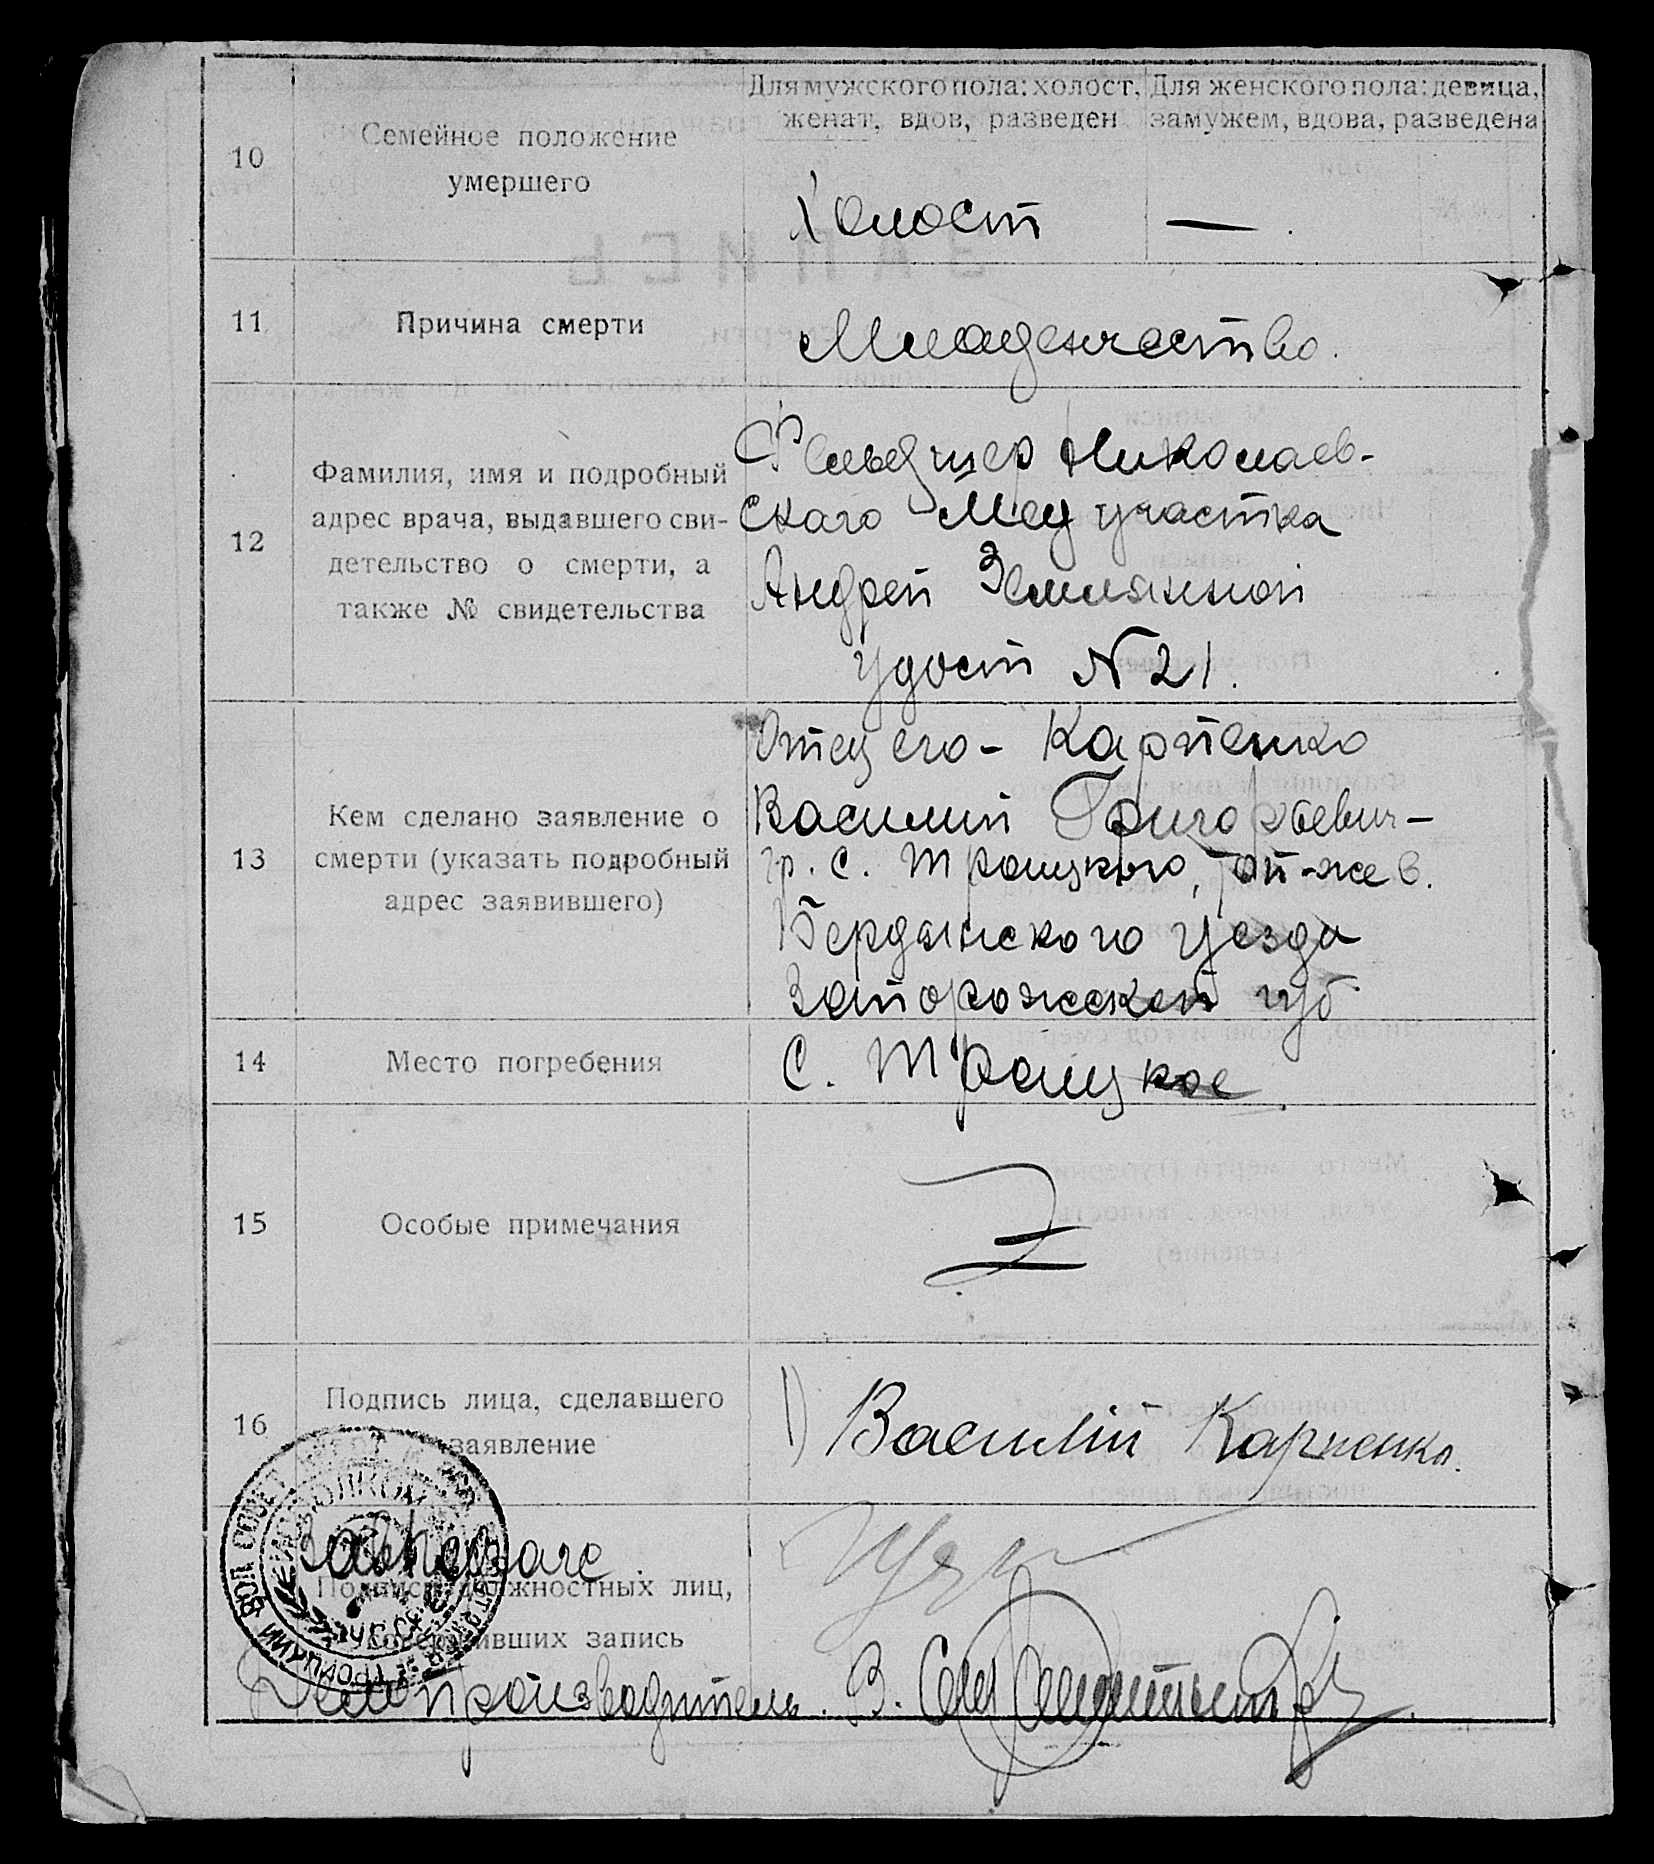 Для мужского пола: холост, женат, вдов, разведен
Для женского пола: девица, замужем, вдова, разведена
10
Семейное положение
умершего
Холост —
11
Причина смерти
Младенчество.
12
Фамилия, имя и подробный
адрес врача, выдавшего сви-
детельство о смерти, а
также № свидетельства
Фельдшер Николаев-
ского Мед участка
Андрей
Удост N 21.
13
Кем сделано заявление о
смерти (указать подробный
адрес заявившего)
Отец его - Карпенко
Василий Григорьевич -
гр. с. Троицкого, той-же в.
Бердянского уезда
Запорожской губ
14
Место погребения
С. Троицкое
15
Особые примечания
16
Подпись лица, сделавшего
заявление
1) Василій Карпенко.
Подписи должностных лиц,
совершивших запись
Делопроизводитель. В.